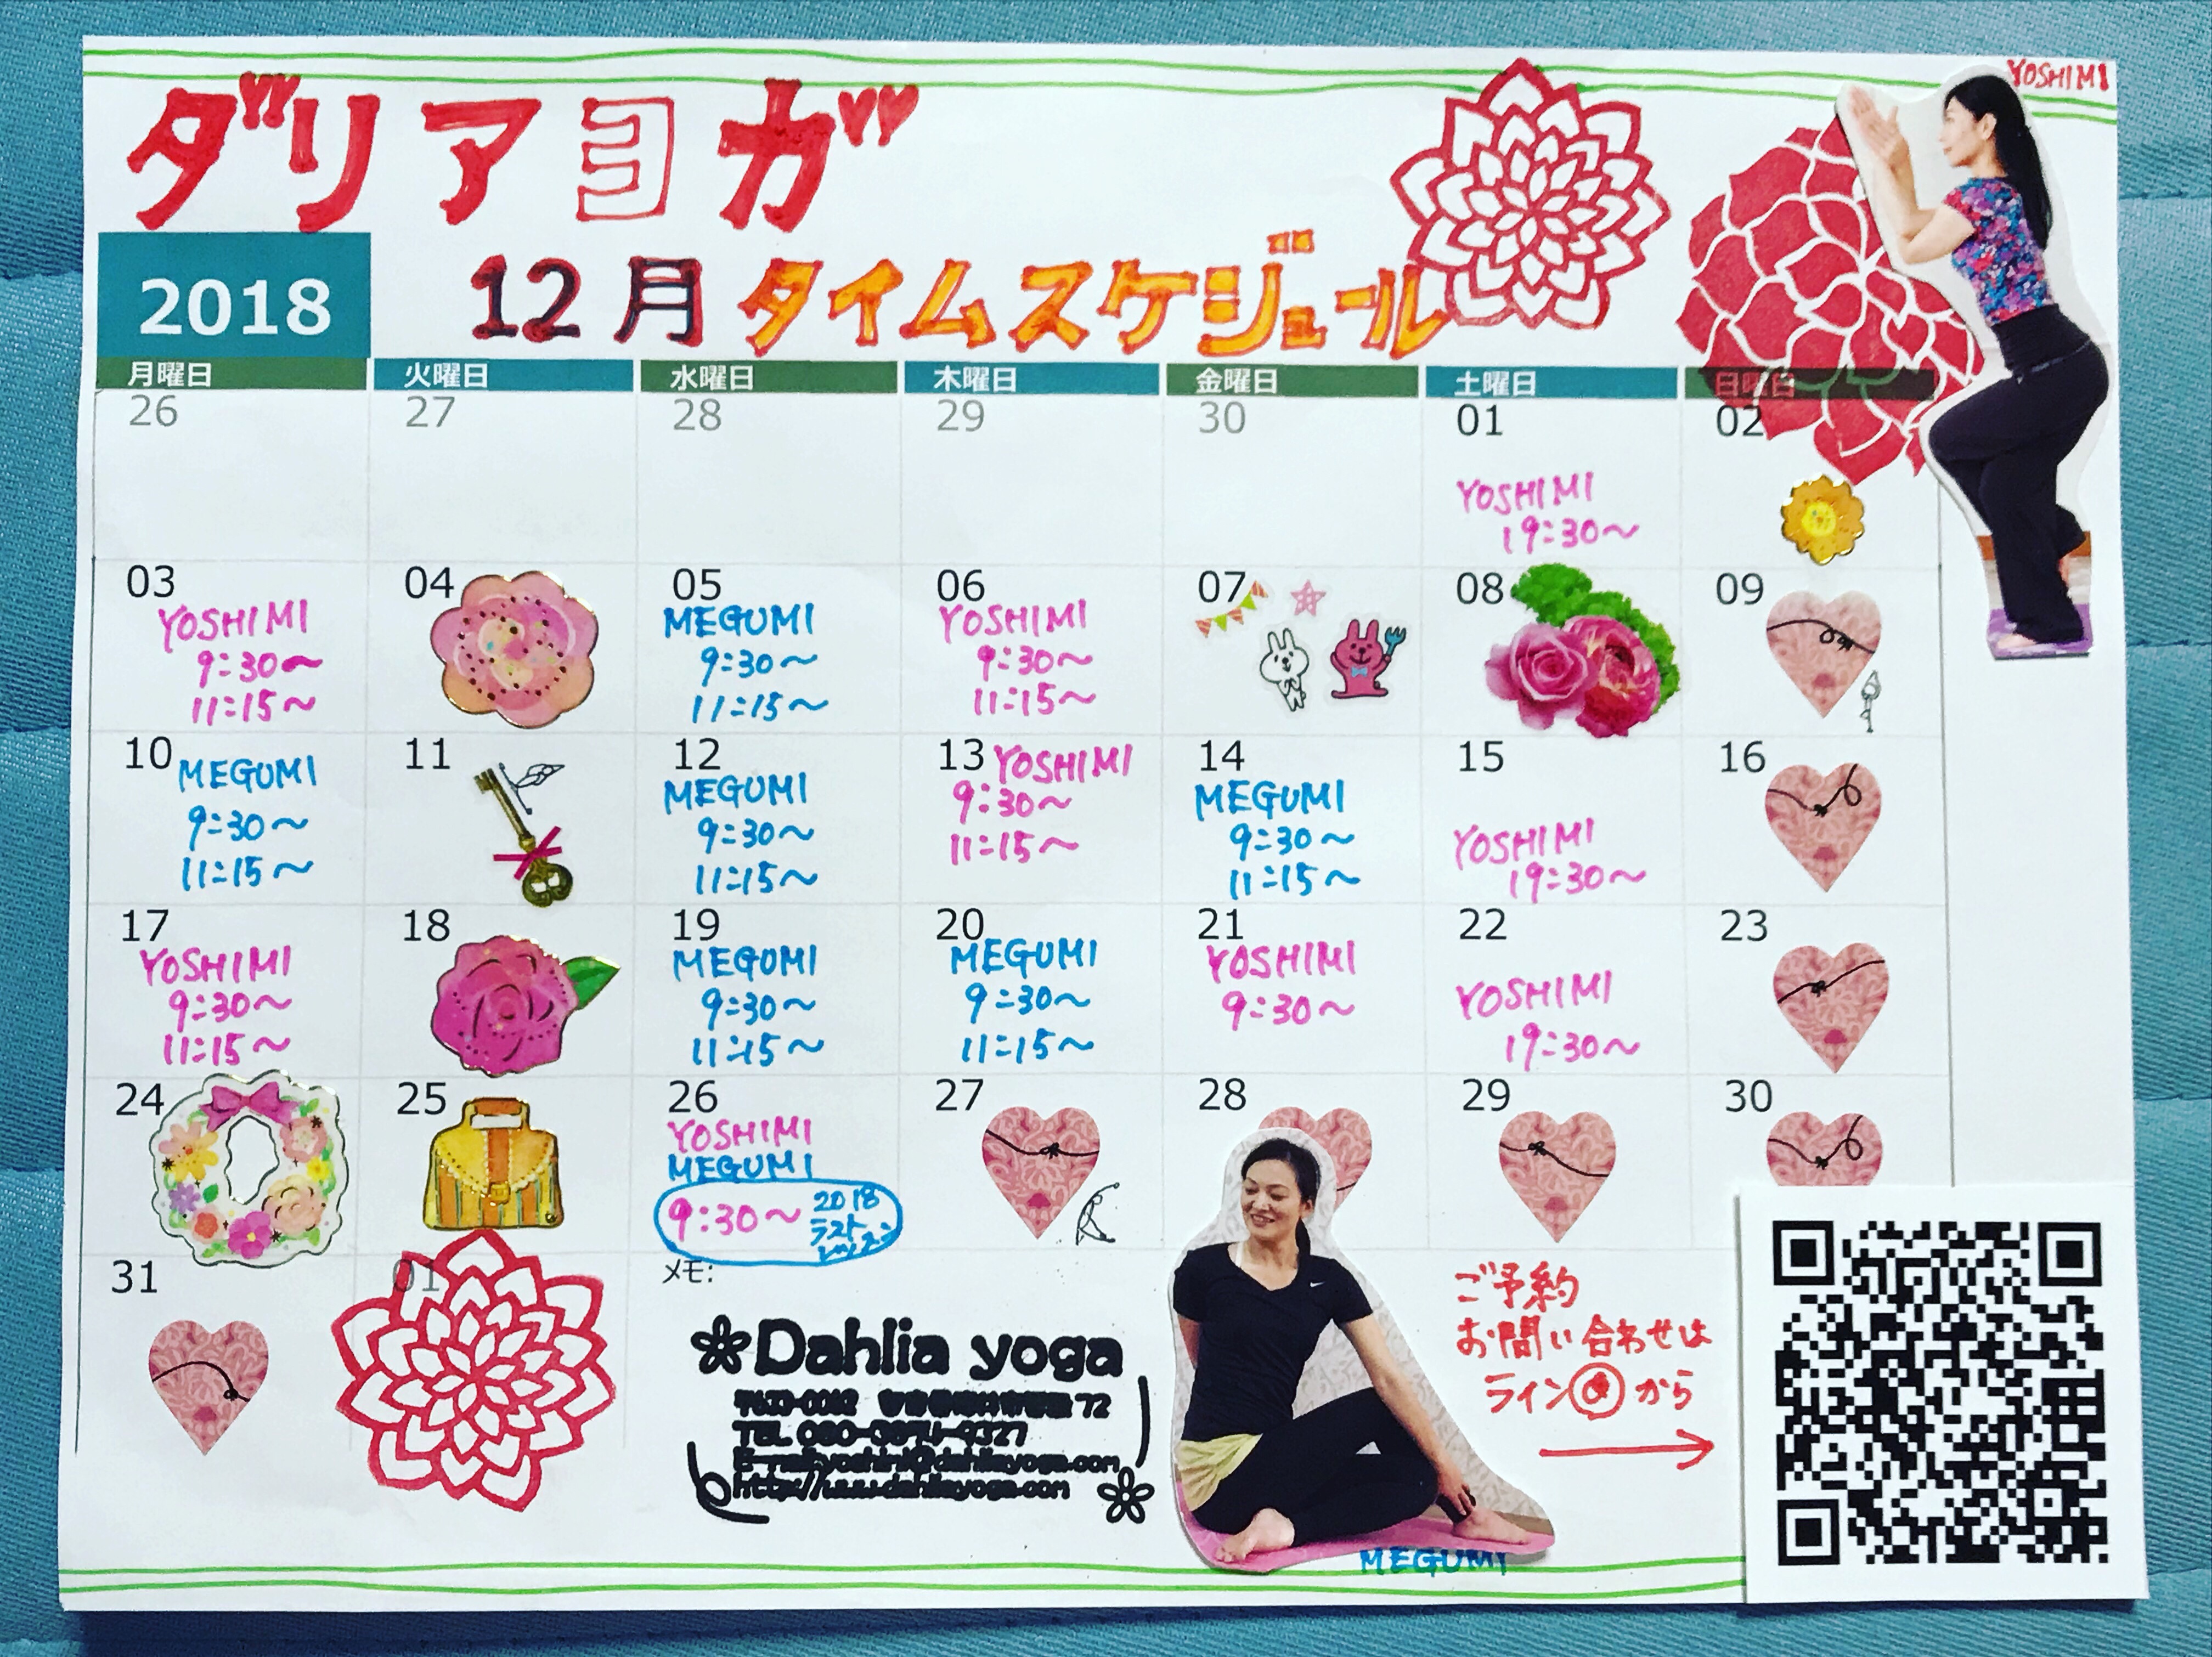 YOSHIMI
ダリアヨガ
2018
12月タイムスケジュール
月曜日 火曜日 水曜日 木曜日 金曜日 土曜日 日曜日
26 27 28 29 30 01 02
YOSHIMI
19:30〜
03 04 05 06 07 08 09
YOSHIMI MEGUMI YOSHIMI
9:30〜 9:30〜 9:30〜
11:15〜 11:15〜 11:15〜
10 11 12 13 14 15 16
MEGUMI MEGUMI YOSHIMI MEGUMI YOSHIMI
9:30〜 9:30〜 9:30〜 9:30〜 19:30〜
11:15〜 11:15〜 11:15〜 11:15〜
17 18 19 20 21 22 23
YOSHIMI MEGUMI MEGUMI YOSHIMI YOSHIMI
9:30〜 9:30〜 9:30〜 9:30〜 19:30〜
11:15〜 11:15〜 11:15〜
24 25 26 27 28 29 30
YOSHIMI
MEGUMI
9:30〜 2018
ラスト
レッスン
31 01 メモ:
Dahlia yoga
72
TEL
http://www.dahliayoga.com
ご予約
お問い合わせは
ライン@から
MEGUMI